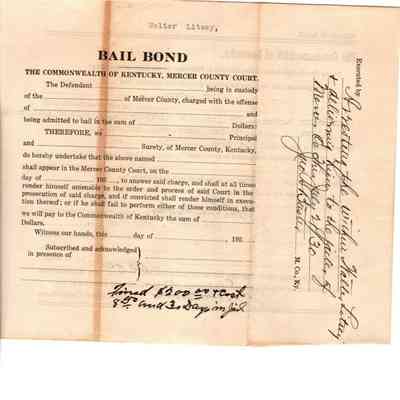 Walter Litsey,
BAIL BOND
THE COMMONWEALTH OF KENTUCKY, MERCER COUNTY COURT.
The Defendant being in custody
of the of Mercer County, charged with the offense
of and
being admitted to bail in the sum of Dollars:
THEREFORE, we Principal
and Surety, of Mercer County, Kentucky,
do hereby undertake that the above named
shall appear in the Mercer County Court, on the
day of 192 , to answer said charge, and shall at all times
render himself amenable to the order and process of said Court in the
prosecution of said charge, and if convicted shall render himself in execu-
tion thereof; or if he shall fail to perform either of those conditions, that
we will pay to the Commonwealth of Kentucky the sum of
Dollars.
Witness our hands, this day of , 192
Subscribed and acknowledged
in presence of
Fined $300 00 & Cost
and 30 Days in Jail
Executed by
Arresting the within Walter Litsey
& delivering him to the jailer of
Mercer Co
M. Co., Ky.